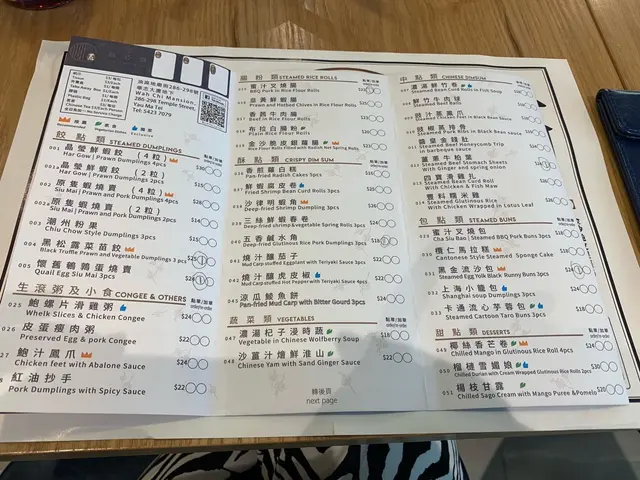 紙巾
Tissue
$3/每包
$3/Each
外賣盒
Take Away Box
$1/每個
$1/Each
膠袋
Plastic Bag
$1/每個
$1/Each
油麻地廟街286-298號
華志大廈地下
Wah Chi Mansion,
286-298 Temple Street,
Yau Ma Tei
Tel: 5423 7079
餃點類 STEAMED DUMPLINGS
001 晶瑩鮮蝦餃 (4粒)
Har Gow | Prawn Dumplings 4pcs
001 晶瑩鮮蝦餃 (2粒)
Har Gow | Prawn Dumplings 2pcs
002 原隻蝦燒賣 (4粒)
Siu Mai | Prawn and Pork Dumplings 4pcs
002 原隻蝦燒賣 (2粒)
Siu Mai | Prawn and Pork Dumplings 2pcs
003 潮州粉果
Chiu Chow Style Dumplings 3pcs
004 黑松露菜苗餃
Black Truffle Prawn and Vegetable Dumplings 3pcs
005 懷舊鵪鶉蛋燒賣
Quail Egg Siu Mai 3pcs
生滾粥及小食 CONGEE & OTHERS
025 鮑螺片滑雞粥
Whelk Slices & Chicken Congee
$24
026 皮蛋瘦肉粥
Preserved Egg & pork Congee
$22
027 鮑汁鳳爪
Chicken feet with Abalone Sauce
$24
紅油抄手
Pork Dumplings with Spicy Sauce
$22
腸粉類 STEAMED RICE ROLLS
蜜汁叉燒腸
BBQ Pork in Rice Flour Rolls
韭黃鮮蝦腸
Prawn and Yellow Chives in Rice Flour Rolls
香茜牛肉腸
Beef in Rice Flour Rolls
布拉白腸粉
Plain Rice Flour Rolls
金沙脆皮蝦蘿腸
酥點類 CRISPY DIM SUM
036 香煎蘿白糕
Pan-fried Radish Cakes 3pcs
037 鮮蝦腐皮卷
Fried Shrimp Bean Curd Rolls 3pcs
038 沙律明蝦角
Deep-fried Shrimp Dumpling 3pcs
三絲鮮蝦春卷
Deep-fried shrimp &vegetable Spring Rolls 3pcs
040 五香鹹水角
Deep-fried Glutinous Rice Pork Dumplings 3pcs
041 燒汁釀茄子
Mud Carp stuffed Eggplant with Teriyaki Sauce 3pcs
042 燒汁釀虎皮椒
Mud Carp stuffed Hot Pepper with Teriyaki Sauce 3pcs
043 涼瓜鯪魚餅
Pan-fried Mud Carp with Bitter Gourd 3pcs
蔬菜類 VEGETABLES
047 濃湯杞子浸時蔬
Vegetable in Chinese Wolfberry Soup
048 沙薑汁燴鮮淮山
Chinese Yam with Sand Ginger Sauce
轉後頁
next page
中點類 CHINESE DIMSUM
007 濃滿鮮竹卷
Steamed Bean Curd Rolls in Fish Soup
鮮竹牛肉球
Steamed Beef Balls
豉汁蒸鳳爪
Steamed Chicken Feet in Black Bean Sauce
豉椒蒸排骨
Steamed Pork Ribs in Black Bean sauce
醬皇金錢肚
Steamed Beef Honeycomb Trip
in barbeque sauce
薑蔥牛柏葉
Steamed Beef Stomach Sheets
with Ginger and spring onion
四寶滑雞扎
Steamed Bean Curd Roll
with Chicken & Fish Maw
014 豐料糯米雞
Glutinous Rice
with Chicken Wrapped in Lotus Leaf
包點類 STEAMED BUNS
029 蜜汁叉燒包
Cha Siu Bao | Steamed BBQ Pork Buns 3pcs
030 欖仁馬拉糕
Cantonese Style Steamed Sponge Cake
031 黑金流沙包
Steamed Egg Yolk Black Runny Buns 3pcs
032 上海小籠包
Shanghai soup Dumplings 3pcs
033 卡通流心芋蓉包
Steamed Cartoon Taro Buns 3pcs
甜點類 DESSERTS
049 椰絲香芒卷
Chilled Mango in Glutinous Rice Roll 4pcs
050 榴槤雪媚娘
Chilled Durian with Cream Wrapped Glutinous Rice Rolls 2pcs
051 楊枝甘露
Chilled Sago Cream with Mango Puree &Pomelo
$20